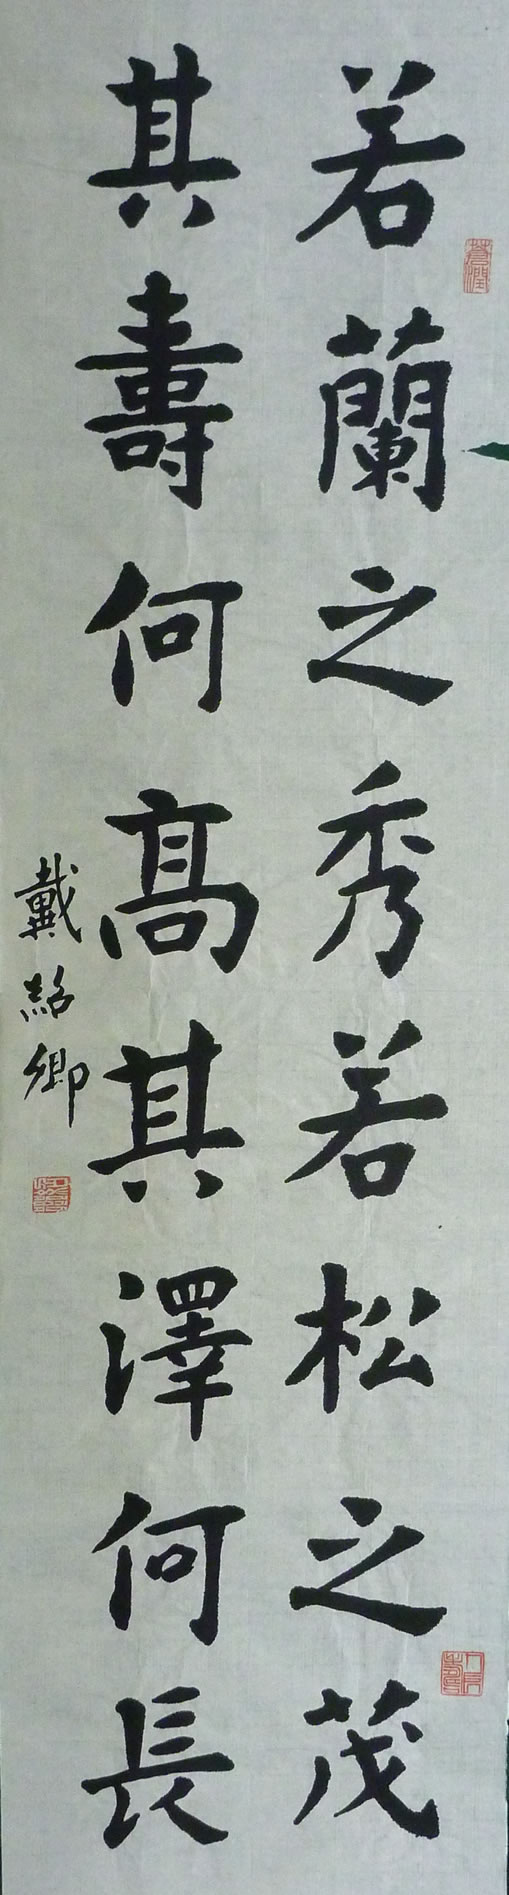 若蘭之秀若松之茂
其壽何高其澤何長
戴紹卿